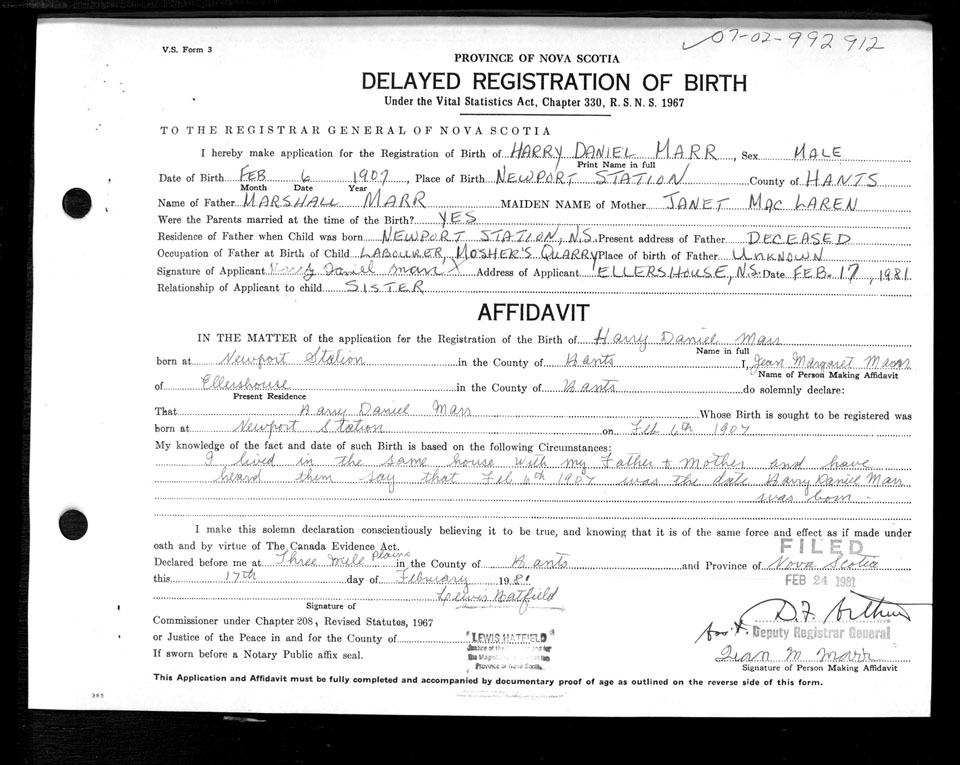 07-02-992912
V.S. Form 3
PROVINCE OF NOVA SCOTIA
DELAYED REGISTRATION OF BIRTH
Under the Vital Statistics Act, Chapter 330, R. S. N. S. 1967
TO THE REGISTRAR GENERAL OF NOVA SCOTIA
I hereby make application for the Registration of Birth of HARRY DANIEL MARR, Sex MALE
Print Name in full
Date of Birth FEB 6 1907, Place of Birth NEWPORT STATION County of HANTS
Month Date Year
Name of Father MARSHALL MARR MAIDEN NAME of Mother JANET MAC LAREN
Were the Parents married at the time of the Birth? YES
Residence of Father when Child was born NEWPORT STATION, N.S. Present address of Father DECEASED
Occupation of Father at Birth of Child LABOURER, MOSHER'S QUARRY Place of birth of Father UNKNOWN
Signature of Applicant Harry Daniel Marr X Address of Applicant ELLERSHOUSE, N.S. Date FEB. 17, 1981
Relationship of Applicant to child SISTER
AFFIDAVIT
IN THE MATTER of the application for the Registration of the Birth of Harry Daniel Marr
Name in full
born at Newport Station in the County of Hants I, Jean Margaret Marr
Name of Person Making Affidavit
of Ellershouse in the County of Hants do solemnly declare:
Present Residence
That Harry Daniel Marr Whose Birth is sought to be registered was
born at Newport Station on Feb 6th 1907
My knowledge of the fact and date of such Birth is based on the following Circumstances:
I lived in the same house with my Father + Mother and have
heard them say that Feb 6th 1907 was the date Harry Daniel Marr
was born -
I make this solemn declaration conscientiously believing it to be true, and knowing that it is of the same force and effect as if made under
oath and by virtue of The Canada Evidence Act.
FILED
Declared before me at Three Mile Plains in the County of Hants and Province of Nova Scotia
this 17th day of February 1981
FEB 24 1981
Lewis Hatfield
Signature of
Commissioner under Chapter 208, Revised Statutes, 1967
or Justice of the Peace in and for the County of
If sworn before a Notary Public affix seal.
LEWIS HATFIELD
Justice of the
Province of Nova Scotia
Ass't. Deputy Registrar General
Jean M. Marr
Signature of Person Making Affidavit
This Application and Affidavit must be fully completed and accompanied by documentary proof of age as outlined on the reverse side of this form.